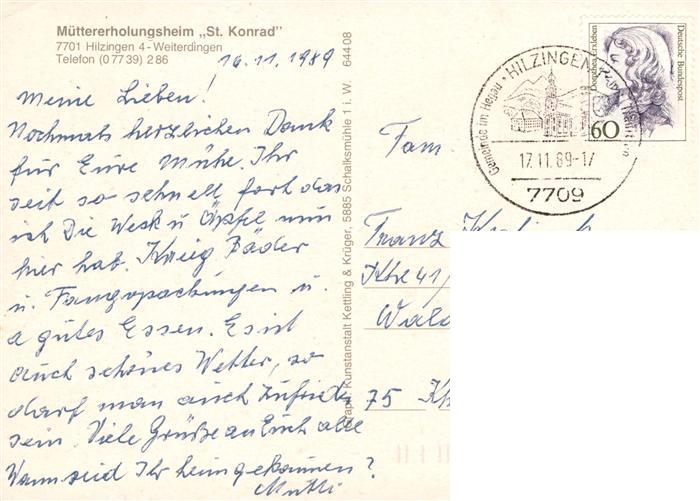 Müttererholungsheim „St. Konrad"
7701 Hilzingen 4 - Weiterdingen
Telefon (0 77 39) 2 86
16.11.1989
Meine Lieben!
Nochmals herzlichen Dank
für Eure Mühe. Ihr
seit so schnell fort das
ich Die Weck u Äpfel nun
hier hab. Krieg Bäder
u. Fangopackungen u.
a gutes Essen. Es ist
auch schönes Wetter, so
darf man auch zufrieden
sein. Viele Grüße an Euch alle
Wann seid Ihr heimgekommen?
Mutti
Grapf. Kunstanstalt Kettling & Krüger, 5885 Schalksmühle 1 i. W 644 08
Fam.
Franz
Khe 41/
Wald
75 Kh
HILZINGEN
Gemeinde im Hegau
17.11.89-17
7709
Dorothea Erxleben
Deutsche Bundespost
60